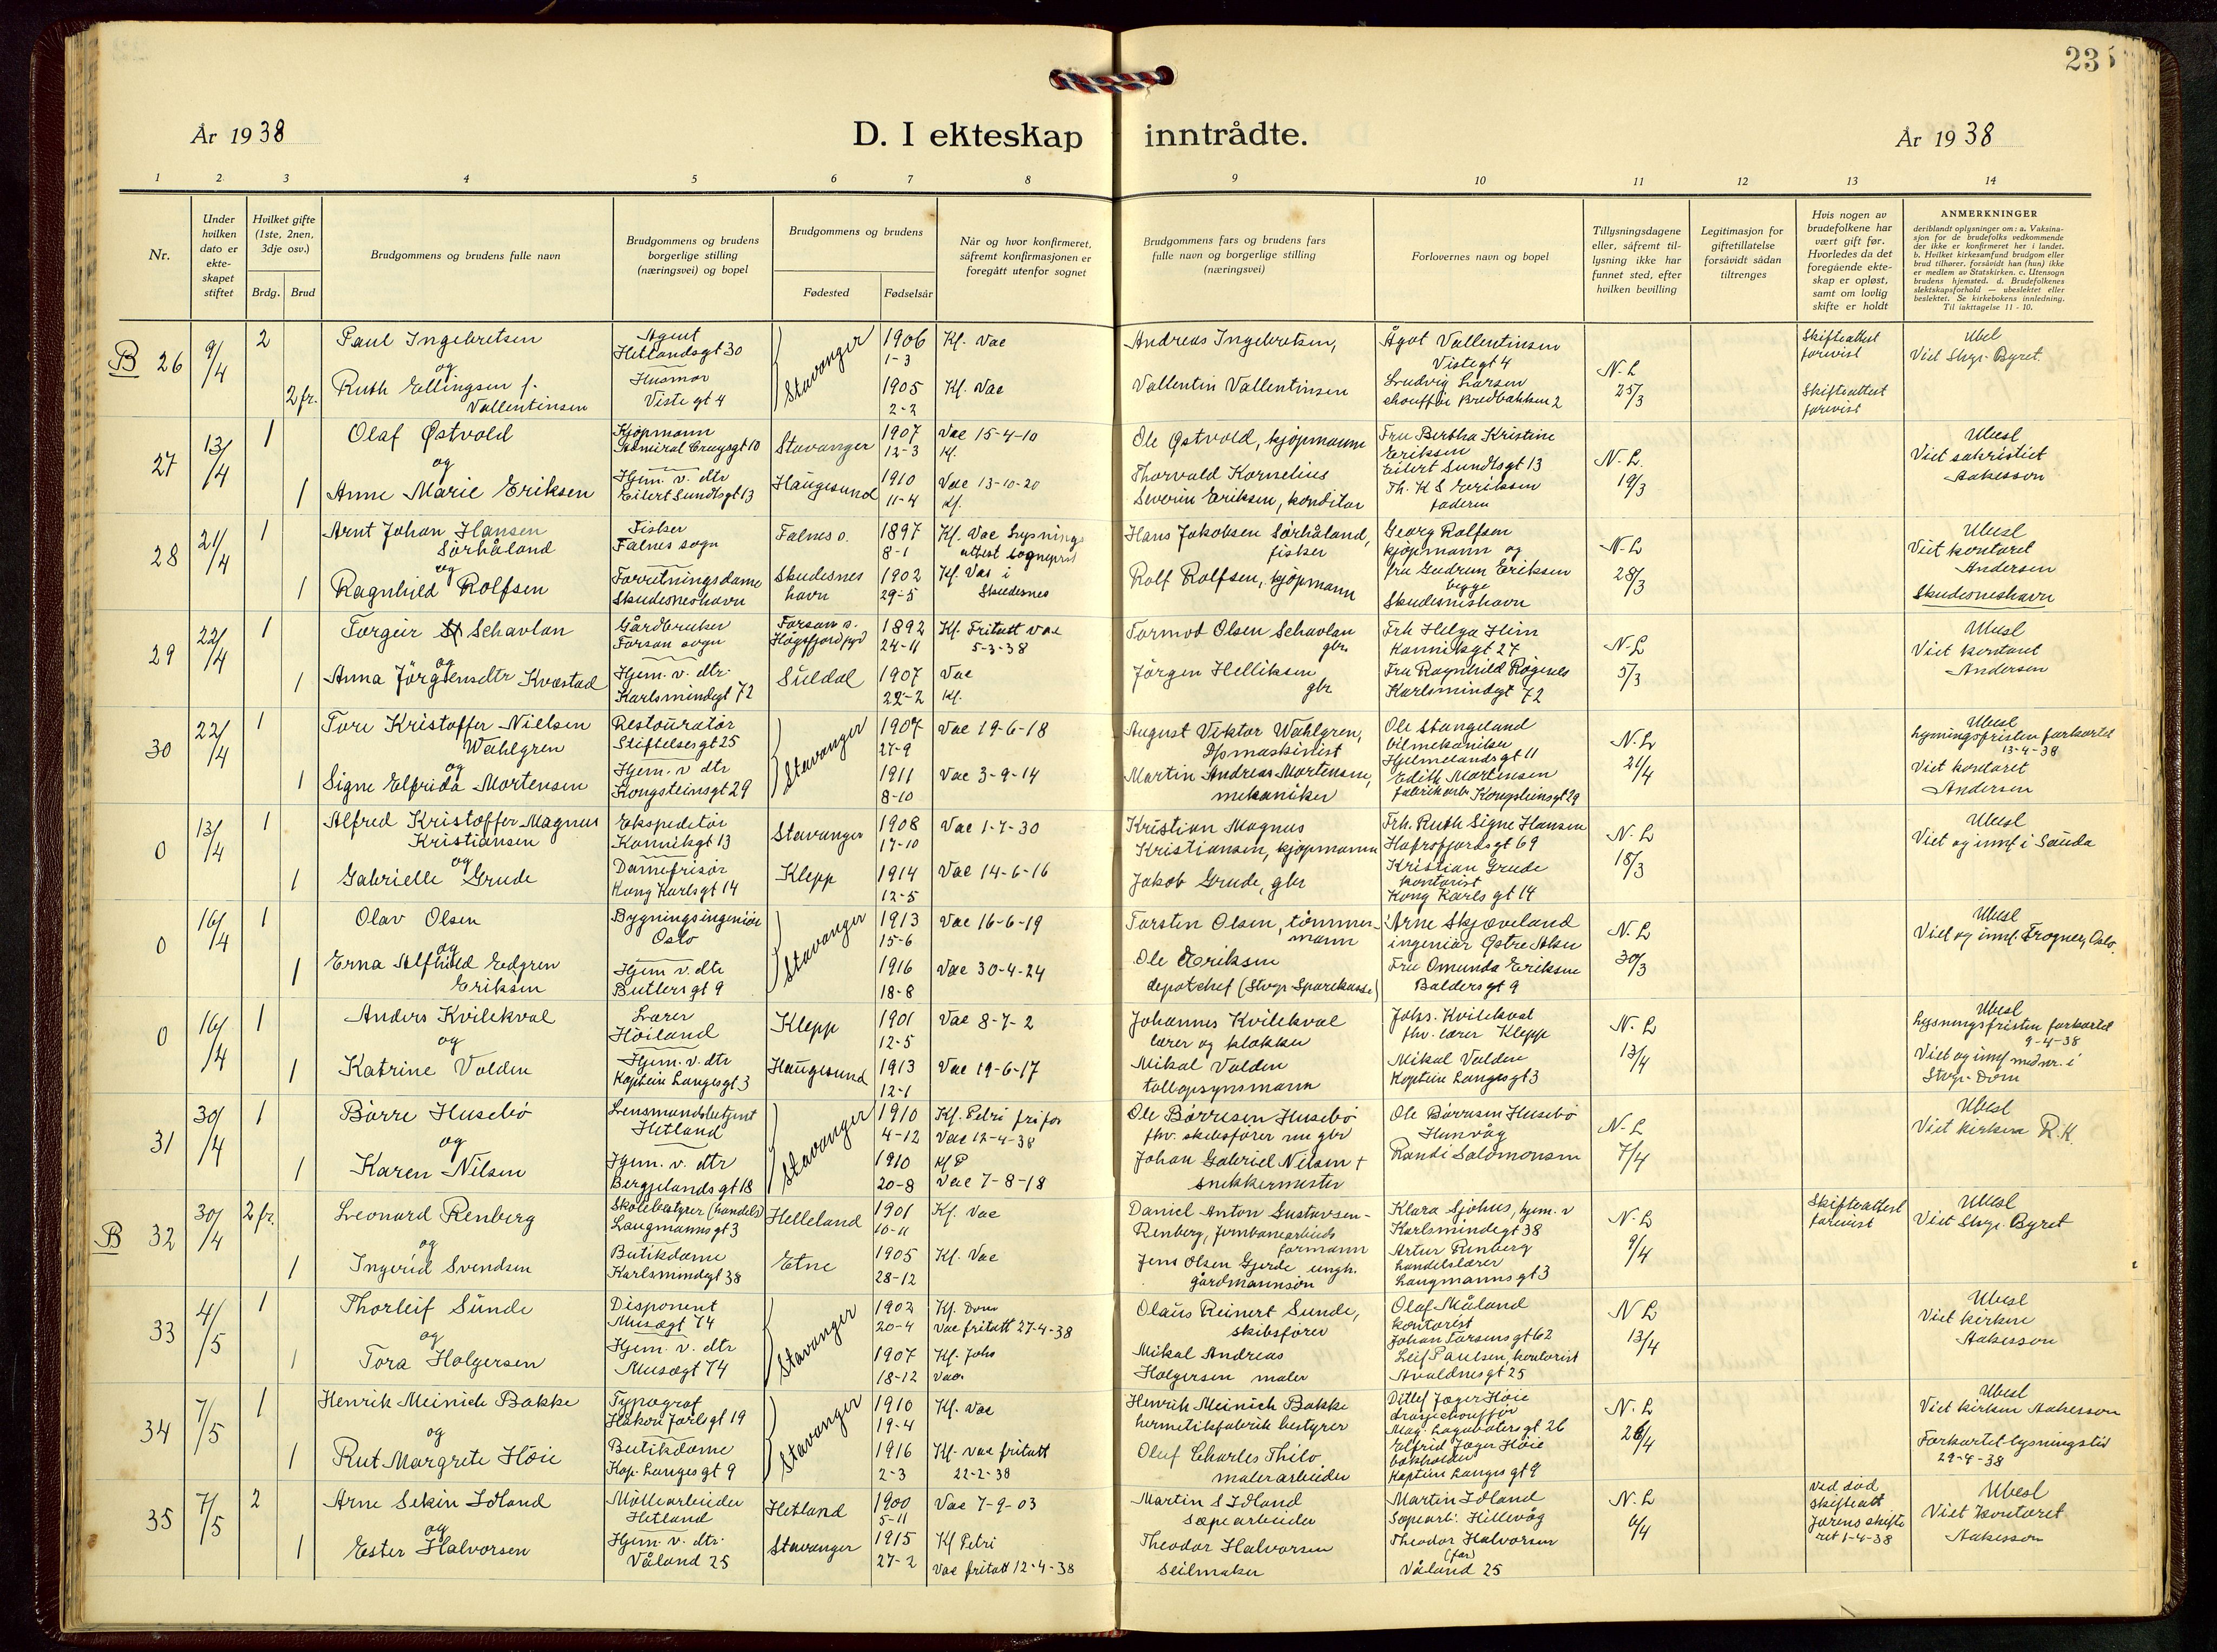 235
År 1938
D. I ekteskap inntrådte.
År 1938
1 2 3 4 5 6 7 8 9 10 11 12 13 14
Nr.
Under hvilken dato er ekte-skapet stiftet
Hvilket gifte (1ste, 2nen, 3dje osv.)
Brdg. Brud
Brudgommens og brudens fulle navn
Brudgommens og brudens borgerlige stilling (næringsvei) og bopel
Brudgommens og brudens
Fødested Fødselsår
Når og hvor konfirmeret, såfremt konfirmasjonen er foregått utenfor sognet
Brudgommens fars og brudens fars fulle navn og borgerlige stilling (næringsvei)
Forlovernes navn og bopel
Tillysningsdagene eller, såfremt til-lysning ikke har funnet sted, efter hvilken bevilling
Legitimasjon for giftetillatelse forsåvidt sådan tiltrenges
Hvis nogen av brudefolkene har vært gift før. Hvorledes da det foregående ekte-skap er opløst, samt om lovlig skifte er holdt
ANMERKNINGER
deriblandt oplysninger om: a. Vaksina-sjon for de brudefolks vedkommende der ikke er konfirmeret her i landet. b. Hvilket kirkesamfund brudgom eller brud tilhører, forsåvidt han (hun) ikke er medlem av Statskirken. c. Utensogn brudens hjemsted. d. Brudefolkenes slektskapsforhold — ubeslektet eller beslektet. Se kirkebokens innledning. Til iakttagelse 11 - 10.
B 26 9/4 2 Paul Ingebretsen Agent Hetlandsgt 30 Stavanger 1906 1-3 Kf. Vac Andreas Ingebretsen, Ågot Vallentinsen Vistegt 4 N-L 25/3 Skifteattest forevist Ubesl Viet Stvgr. Byret.
og
2 fr. Ruth Ellingsen f. Vallentinsen Husmor Viste gt 4 1905 2-2 Kf. Vac Vallentin Vallentinsen Ludvig Larsen chauffør Bredbakken 2 Skifteattest forevist
27 13/4 1 Olaf Østvold Kjøpmann Admiral Cruysgt 10 Stavanger 1907 12-3 Vac 15-4-10 Kf. Ole Østvold, kjøpmann Fru Bertha Kristine Eriksen Eilert Sundtsgt 13 N-L. 19/3 Ubesl Viet sakristiet Aakesson
og
1 Anne Marie Eriksen Hjem. v. dtr Eilert Sundtsgt 13 Haugesund 1910 11-4 Vac 13-10-20 Kf. Thorvald Kornelius Severin Eriksen, konditor Th. K S Eriksen faderen
28 21/4 1 Arnt Johan Hansen Sørhåland Fisker Falnes sogn Falnes s. 1897 8-1 Kf. Vac Lysnings attest sognepr Hans Jakobsen Sørhåland, fisker Georg Rolfsen kjøpmann og N-L 28/3 Ubesl Viet kontoret Andersen
og
1 Ragnhild Rolfsen Forretningsdame Skudesneshavn Skudesnes havn 1902 29-5 Kf. Vac i Skudesnes Rolf Rolfsen, kjøpmann fru Gudrun Eriksen begge Skudesneshavn Skudesneshavn
29 22/4 1 Torger Schavlan Gårdbruker Forsan sogn Forsan s. Høgsfjord 1892 24-11 Kf. Fritatt vac 5-3-38 Tormod Olsen Schavlan gbr. Frk Helga Heim Kannikgt 27 N-L 5/3 Ubesl Viet kontoret Andersen
og
1 Anna Jørgensdtr Kvæstad Hjem. v. dtr. Karlsmindegt 72 Suldal 1907 22-2 Vac Kf. Jørgen Helliksen gbr Fru Ragnhild Karlsmindegt 72
30 22/4 1 Tore Kristoffer Nielsen Wahlgren Restauratør Stiftelsesgt 25 Stavanger 1907 27-9 Vac 19-6-18 August Viktor Wahlgren, maskinist Ole Stangeland bilmekaniker Hjelmelandsgt 11 N-L 21/4 Ubesl Lysningsfristen forkortet 13-4-38
og
1 Signe Elfrida Mortensen Hjem. v dtr Kongsteinsgt 29 1911 8-10 Vac 3-9-14 Martin Andreas Mortensen, mekaniker Edith Mortensen fabrikarb. Kongsteinsgt 29 Viet kontoret Andersen
0 13/4 1 Alfred Kristoffer Magnus Kristiansen Ekspeditør Kannikgt 13 Stavanger 1908 17-10 Vac 1-7-30 Kristian Magnus Kristiansen, kjøpmann Frk. Ruth Signe Hansen Hafrsfjordsgt 69 N-L 18/3 Ubesl Viet og innf i Sauda
og
1 Gabrielle Grude Damefrisør Kong Karlsgt 14 Klepp 1914 12-5 Vac 14-6-16 Jakob Grude, gbr Kristian Grude kontorist Kong Karls gt 14
0 16/4 1 Olav Olsen Bygningsingeniør Oslo Stavanger 1913 15-6 Vac 16-6-19 Torsten Olsen, tømmermann Arne Skjæveland ingeniør Østre Aker N-L. 30/3 Ubesl Viet og innf. Frogner, Oslo.
og
1 Erna Alfhild Edgren Eriksen Hjem v. dtr Butlers gt 9 1916 18-8 Vac 30-4-24 Ole Eriksen depotchef (Stvgr Sparekasse) Fru Omunda Eriksen Balders gt 9
0 16/4 1 Anders Kvilekval Lærer Høiland Klepp 1901 12-5 Vac 8-7-2 Johannes Kvilekval lærer og klokker Johs. Kvilekval fhv. lærer Klepp N-L 13/4 Ubesl Lysningsfristen forkortet 9-4-38
og
1 Katrine Valden Hjem. v. dtr Kaptein Langesgt 3 Haugesund 1913 12-1 Vac 19-6-17 Mikal Valden tollopsynsmann Mikal Valden Kaptein Langesgt 3 Viet og innf med nr. i Stvgr. Dom
31 30/4 1 Børre Husebø Lensmannsbetjent Hetland Stavanger 1910 4-12 Kf. Petri fri for Vac 12-4-38 Ole Børresen Husebø fhv. skibsfører nu gbr Ole Børresen Husebø Hunvåg N-L 7/4 Ubesl Viet kirken R.K.
og
1 Karen Nilsen Hjem. v. dtr Bergjelands gt 18 1910 20-8 Kf P Vac 7-8-18 Johan Gabriel Nilsen + snekkermester Randi Salomonsen
B 32 30/4 2 fr. Leonard Renberg Skolebestyrer (handels) Laugmannsgt 3 Helleland 1901 10-11 Kf. Vac Daniel Anton Gustavsen-Renberg, Jernbanearbeids formann Klara Sjøhus, hjem. v Karlsmindegt 38 N-L 9/4 Skifteattest forevist Ubesl Viet Stvgr. Byret
og
1 Ingerid Svendsen Butikdame Karlsmindegt 38 Etne 1905 28-12 Kf. Vac Jens Olsen Gjerde ungk. gårdmannsøn Artur Renberg handelslærer Laugmannsgt 3
33 4/5 1 Thorleif Sunde Disponent Musegt 74 Stavanger 1902 20-4 Kf. Dom Vac fritatt 27-4-38 Olaus Reinert Sunde, skibsfører Olaf Måland kontorist Johan Torsensgt 62 N L 13/4 Ubesl Viet kirken Aakesson
og
1 Tora Holgersen Hjem. v. dtr Musegt 74 1907 18-12 Kf. Johs Vac. Mikal Andreas Holgersen maler Leif Paulsen, kontorist Avaldnesgt 25
34 7/5 1 Henrik Meinich Bakke Typograf Håkon Jarls gt 19 Stavanger 1910 19-4 Kf. Vac Henrik Meinich Bakke hermetikfabrik bestyrer Ditlef Jæger Høie drosjechauffør Mag. Lagabøtersgt 26 N-L 26/4 Ubesl Viet kirken Aakesson
og
1 Rut Margrete Høie Butikdame Kap. Langes gt 9 1916 2-3 Kf. Vac fritatt 22-2-38 Oluf Charles Thilo malerarbeider Elfrid Jæger Høie bokholder Kaptein Langes gt 9 Forkortet lysningstid 29-4-38
35 7/5 2 Arne Sekin Idland Møllearbeider Hetland Hetland 1900 5-11 Vac 7-9-03 Martin S Idland sæpearbeider Martin Idland Sæpearb. Hillevåg N-L 6/4 Ved død skifteatt Jærens skifte ret 1-4-38 Ubesl Viet Kontoret Aakesson
og
1 Ester Halvorsen Hjem. v. dtr. Våland 25 Stavanger 1915 27-2 Kf Petri Vac fritatt 12-4-38 Theodor Halvorsen seilmaker Theodor Halvorsen (far) Våland 25